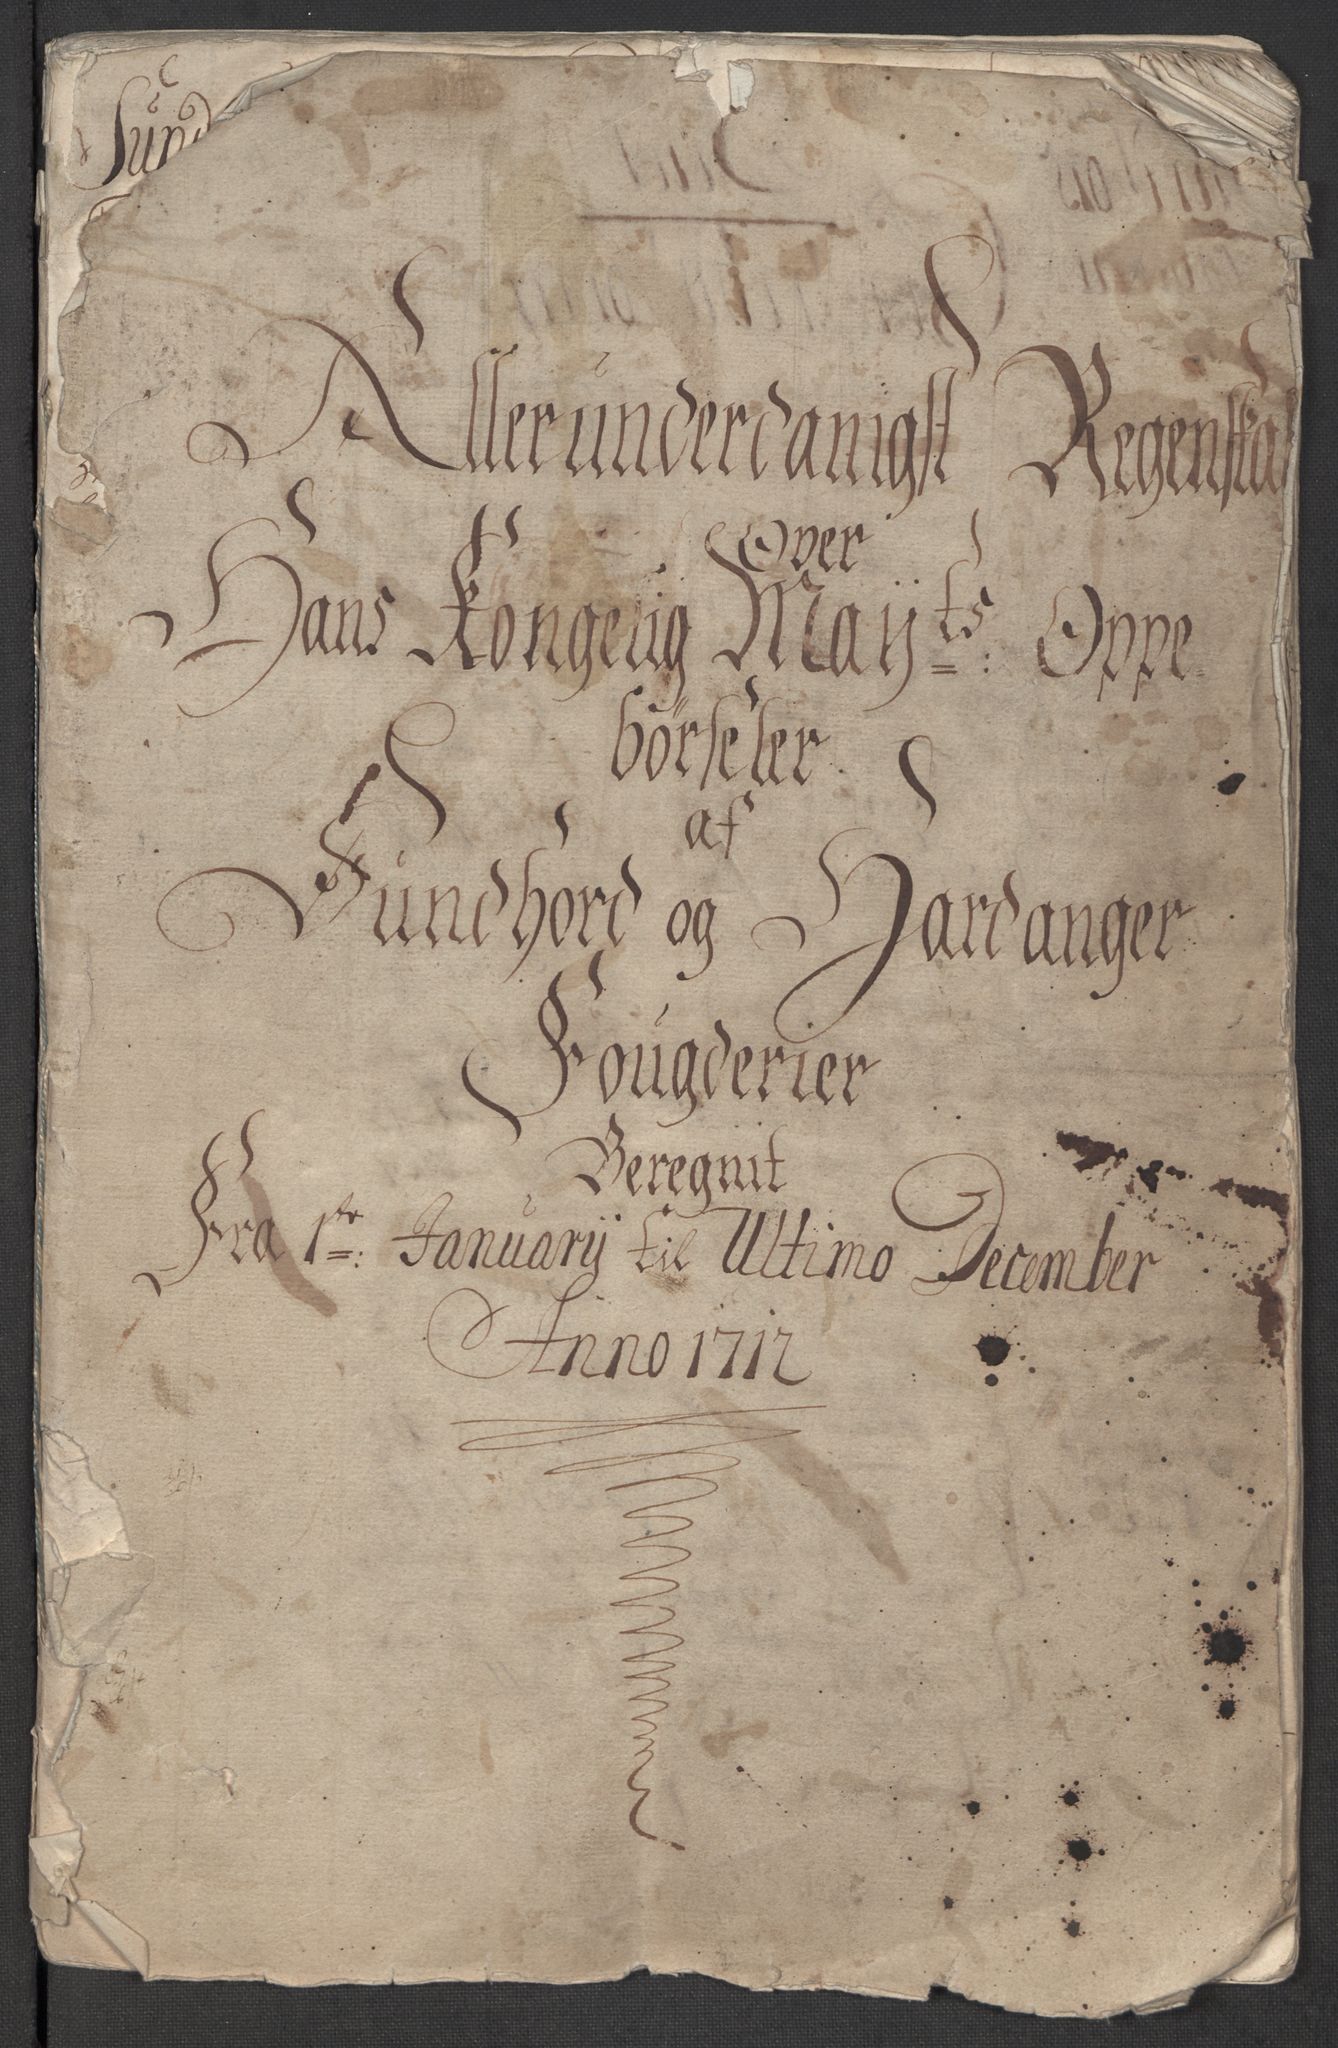 Sund
Allerunderdanigst Regenskab
Over
Hans Kongelig Mayts: Oppe
börseler
af
Sundhord og Hardanger
Fougderier
Beregnit
Fra 1te: Januarij til Ultimo December
Anno 1712